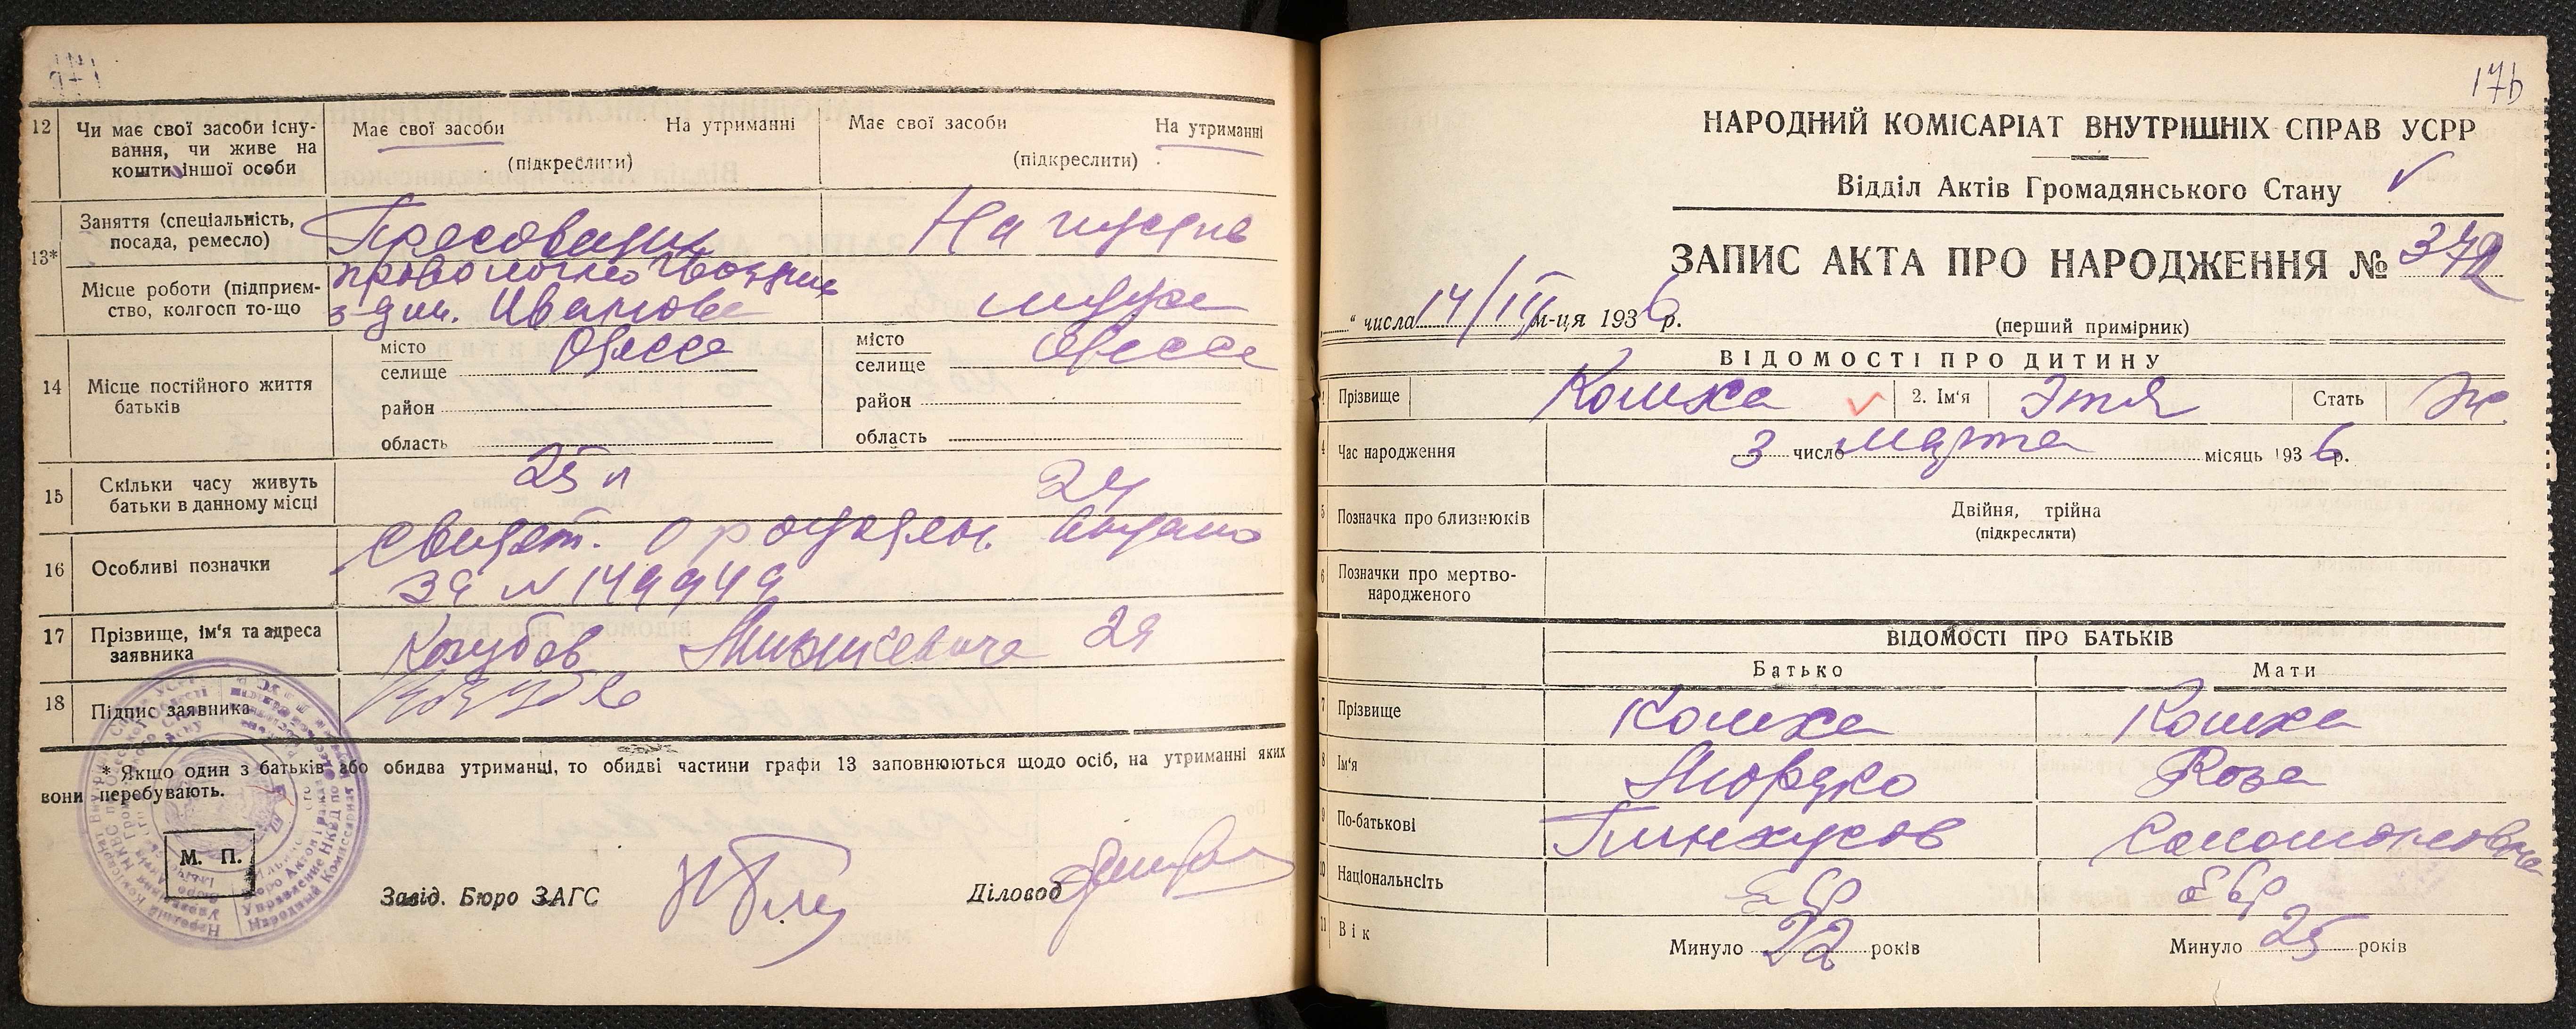 12 Чи має свої засоби існу-
вання, чи живе на
кошти іншої особи
Має свої засоби На утриманні
(підкреслити)
Має свої засоби На утриманні
(підкреслити)
13*
Заняття (спеціальність,
посада, ремесло)
Пресовщик
На иждив
Місце роботи (підприєм-
ство, колгосп то-що
з-д им. Иванова
мужа
14 Місце постійного життя
батьків
місто Одесса
селище
район
область
місто Одесса
селище
район
область
15 Скільки часу живуть
батьки в данному місці
25 л
24
16 Особливі позначки
Свидет. о рожден. выдано
за N 149949
17 Прізвище, ім'я та адреса
заявника
29
18 Підпис заявника
* Якщо один з батьків або обидва утриманці, то обидві частини графи 13 заповнюються щодо осіб, на утриманні яких
вони перебувають.
М. П.
Завід. Бюро ЗАГС
Діловод
176
НАРОДНИЙ КОМІСАРІАТ ВНУТРІШНІХ СПРАВ УСРР
Відділ Актів Громадянського Стану
ЗАПИС АКТА ПРО НАРОДЖЕННЯ №
" числа 14/III м-ця 1936 р.
(перший примірник)
ВІДОМОСТІ ПРО ДИТИНУ
1 Прізвище Кошка 2. Ім'я Этя Стать Ж
4 Час народження 3 число марта місяць 1936 р.
5 Позначка про близнюків Двійня, трійна
(підкреслити)
6 Позначки про мертво-
народженого
ВІДОМОСТІ ПРО БАТЬКІВ
Батько Мати
7 Прізвище Кошка Кошка
8 Ім'я Мордко Роза
9 По-батькові Пинхусов Соломоновна
10 Національнсіть евр евр
11 Вік Минуло 22 років Минуло 25 років